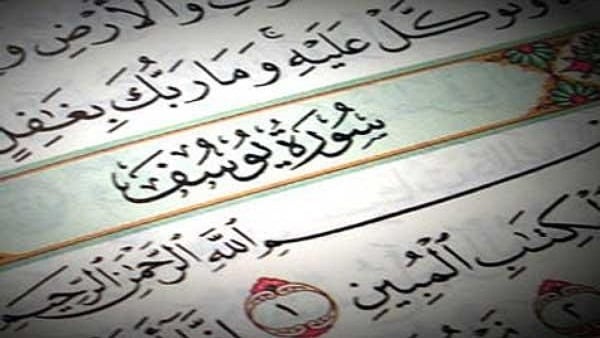 وَٱلْأَرْضِ
وَتَوَكَّلْ عَلَيْهِ ۚ وَمَا رَبُّكَ بِغَٰفِلٍ
سُورَةُ يُوسُفَ
بِسْمِ ٱللَّهِ ٱلرَّحْمَٰنِ ٱلرَّحِيمِ
ٱلْكِتَٰبِ ٱلْمُبِينِ ١
٢